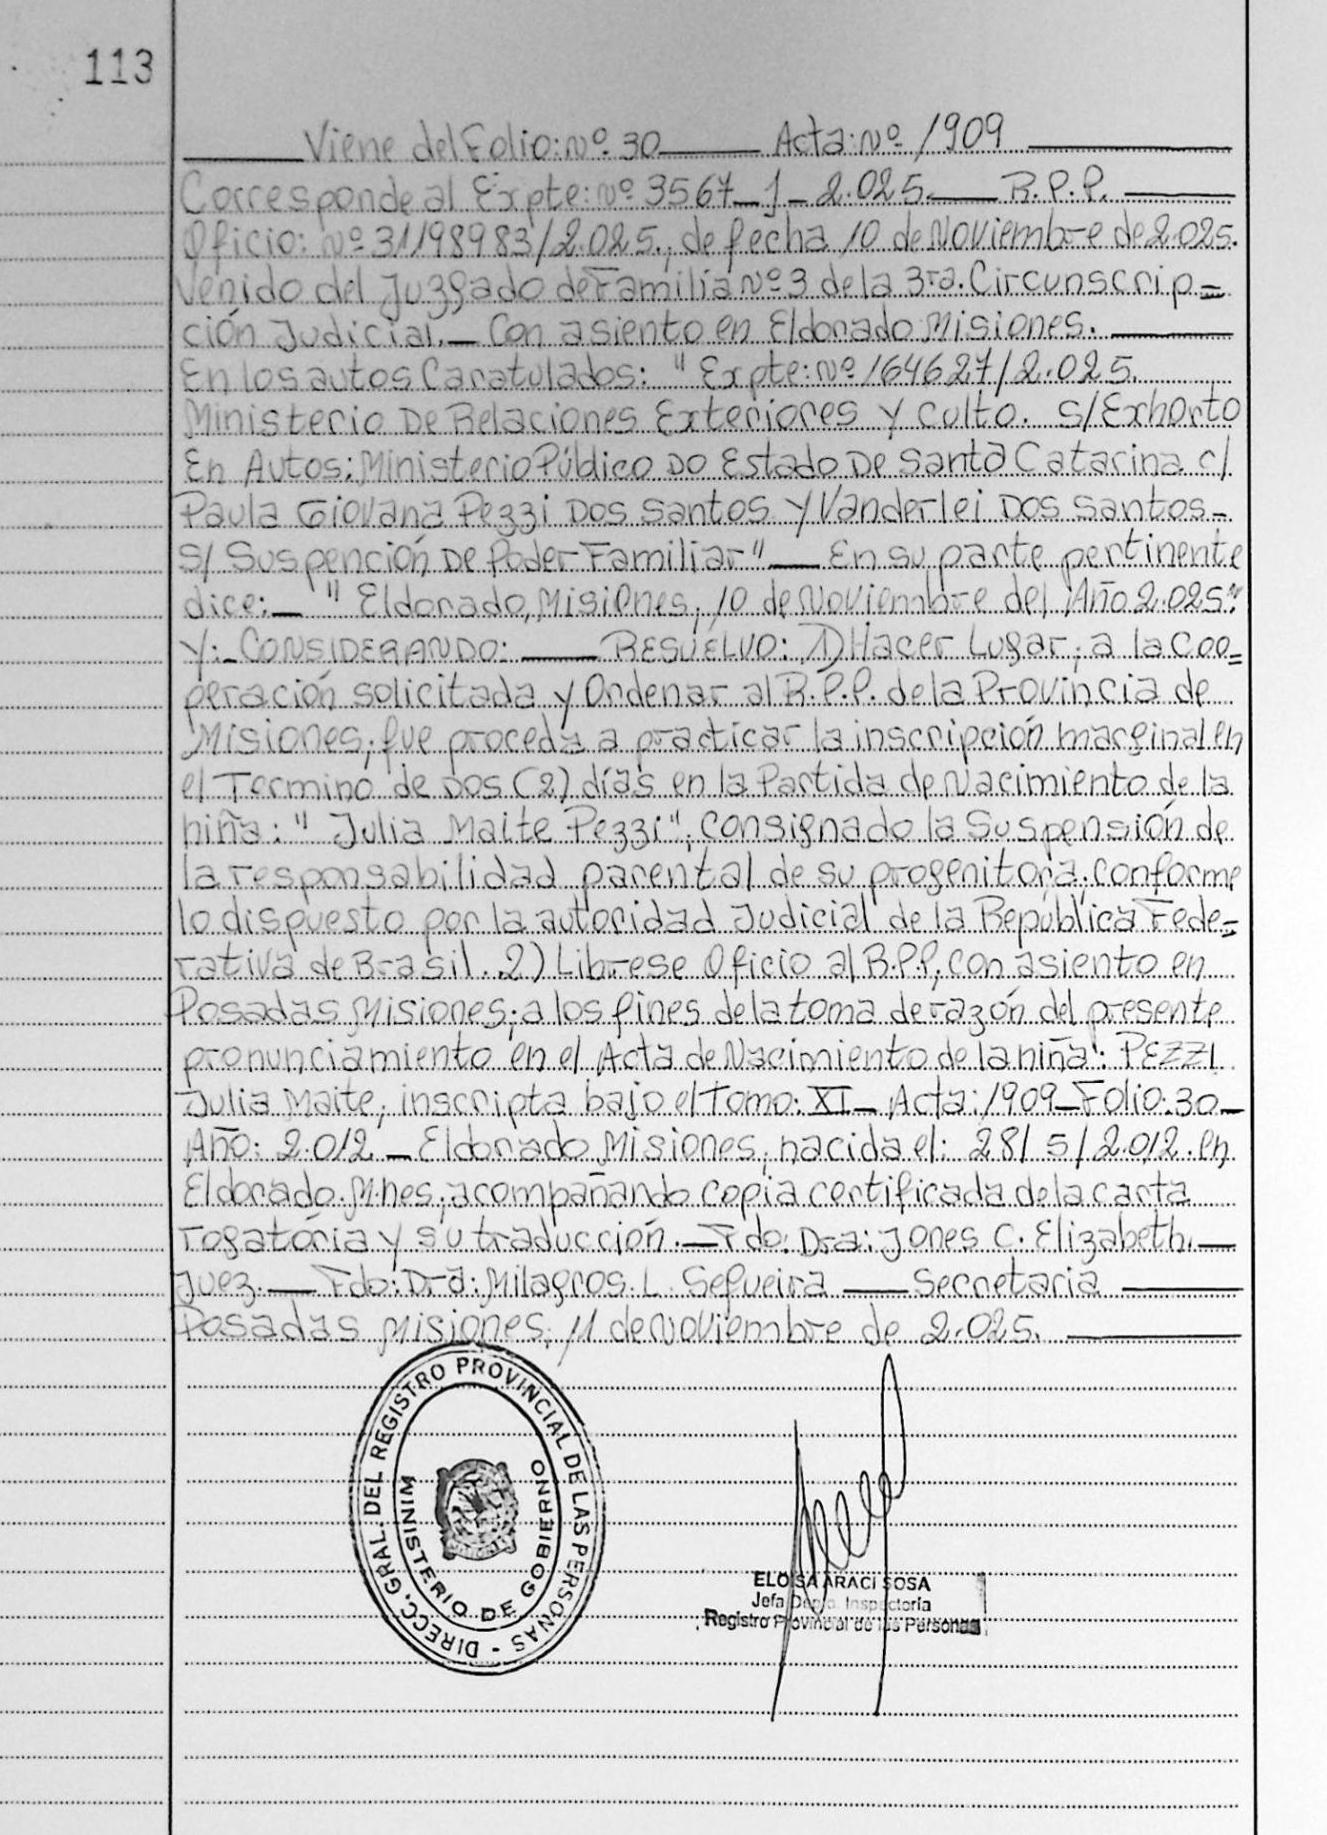 113
Viene del Folio: Nº 30 Acta: Nº 1909
Corresponde al Expte: Nº 3567_J_2.025. R.P.P.
Oficio: Nº 31198983/2.025., de fecha 10 de Noviembre de 2.025.
Venido del Juzgado de Familia Nº 3 de la 3ra. Circunscrip=
ción Judicial._ Con asiento en Eldorado Misiones.
En los autos Caratulados: "Expte: Nº 164627/2.025.
Ministerio De Relaciones Exteriores Y Culto. S/Exhorto
En Autos: Ministerio Público DO Estado De Santa Catarina c/
Paula Giovana Pezzi Dos Santos Y Vanderlei Dos Santos_
S/ Suspención De Poder Familiar" En su parte pertinente
dice:_ "Eldorado, Misiones, 10 de Noviembre del Año 2.025"
Y:_ CONSIDERANDO: RESUELVO: 1) Hacer Lugar, a la Coo=
peración solicitada y Ordenar al R.P.P. de la Provincia de
Misiones, que proceda a practicar la inscripción marginal en
el Termino de Dos (2) días en la Partida de Nacimiento de la
niña: "Julia Maite Pezzi", Consignado la Suspensión de
la responsabilidad parental de su progenitora, conforme
lo dispuesto por la autoridad Judicial de la República Fede=
rativa de Brasil. 2) Librese Oficio al R.P.P, con asiento en
Posadas Misiones, a los fines de la toma de razón del presente
pronunciamiento en el Acta de Nacimiento de la niña: PEZZI
Julia Maite, inscripta bajo el Tomo: XI_ Acta: 1909_Folio: 30_
Año: 2.012_ Eldorado Misiones, nacida el: 28/5/2.012. en
Eldorado. Mnes, acompañando copia certificada de la carta
rogatória y su traducción._Fdo: Dra: Jones C. Elizabeth.
Juez. Fdo: Dra: Milagros. L. Sequeira Secretaria
Posadas Misiones, 11 de Noviembre de 2.025.
DIRECC. GRAL. DEL REGISTRO PROVINCIAL DE LAS PERSONAS -
MINISTERIO DE GOBIERNO
ELOISA ARACI SOSA
Jefa Depto. Inspectoría
Registro Provincial de las Personas